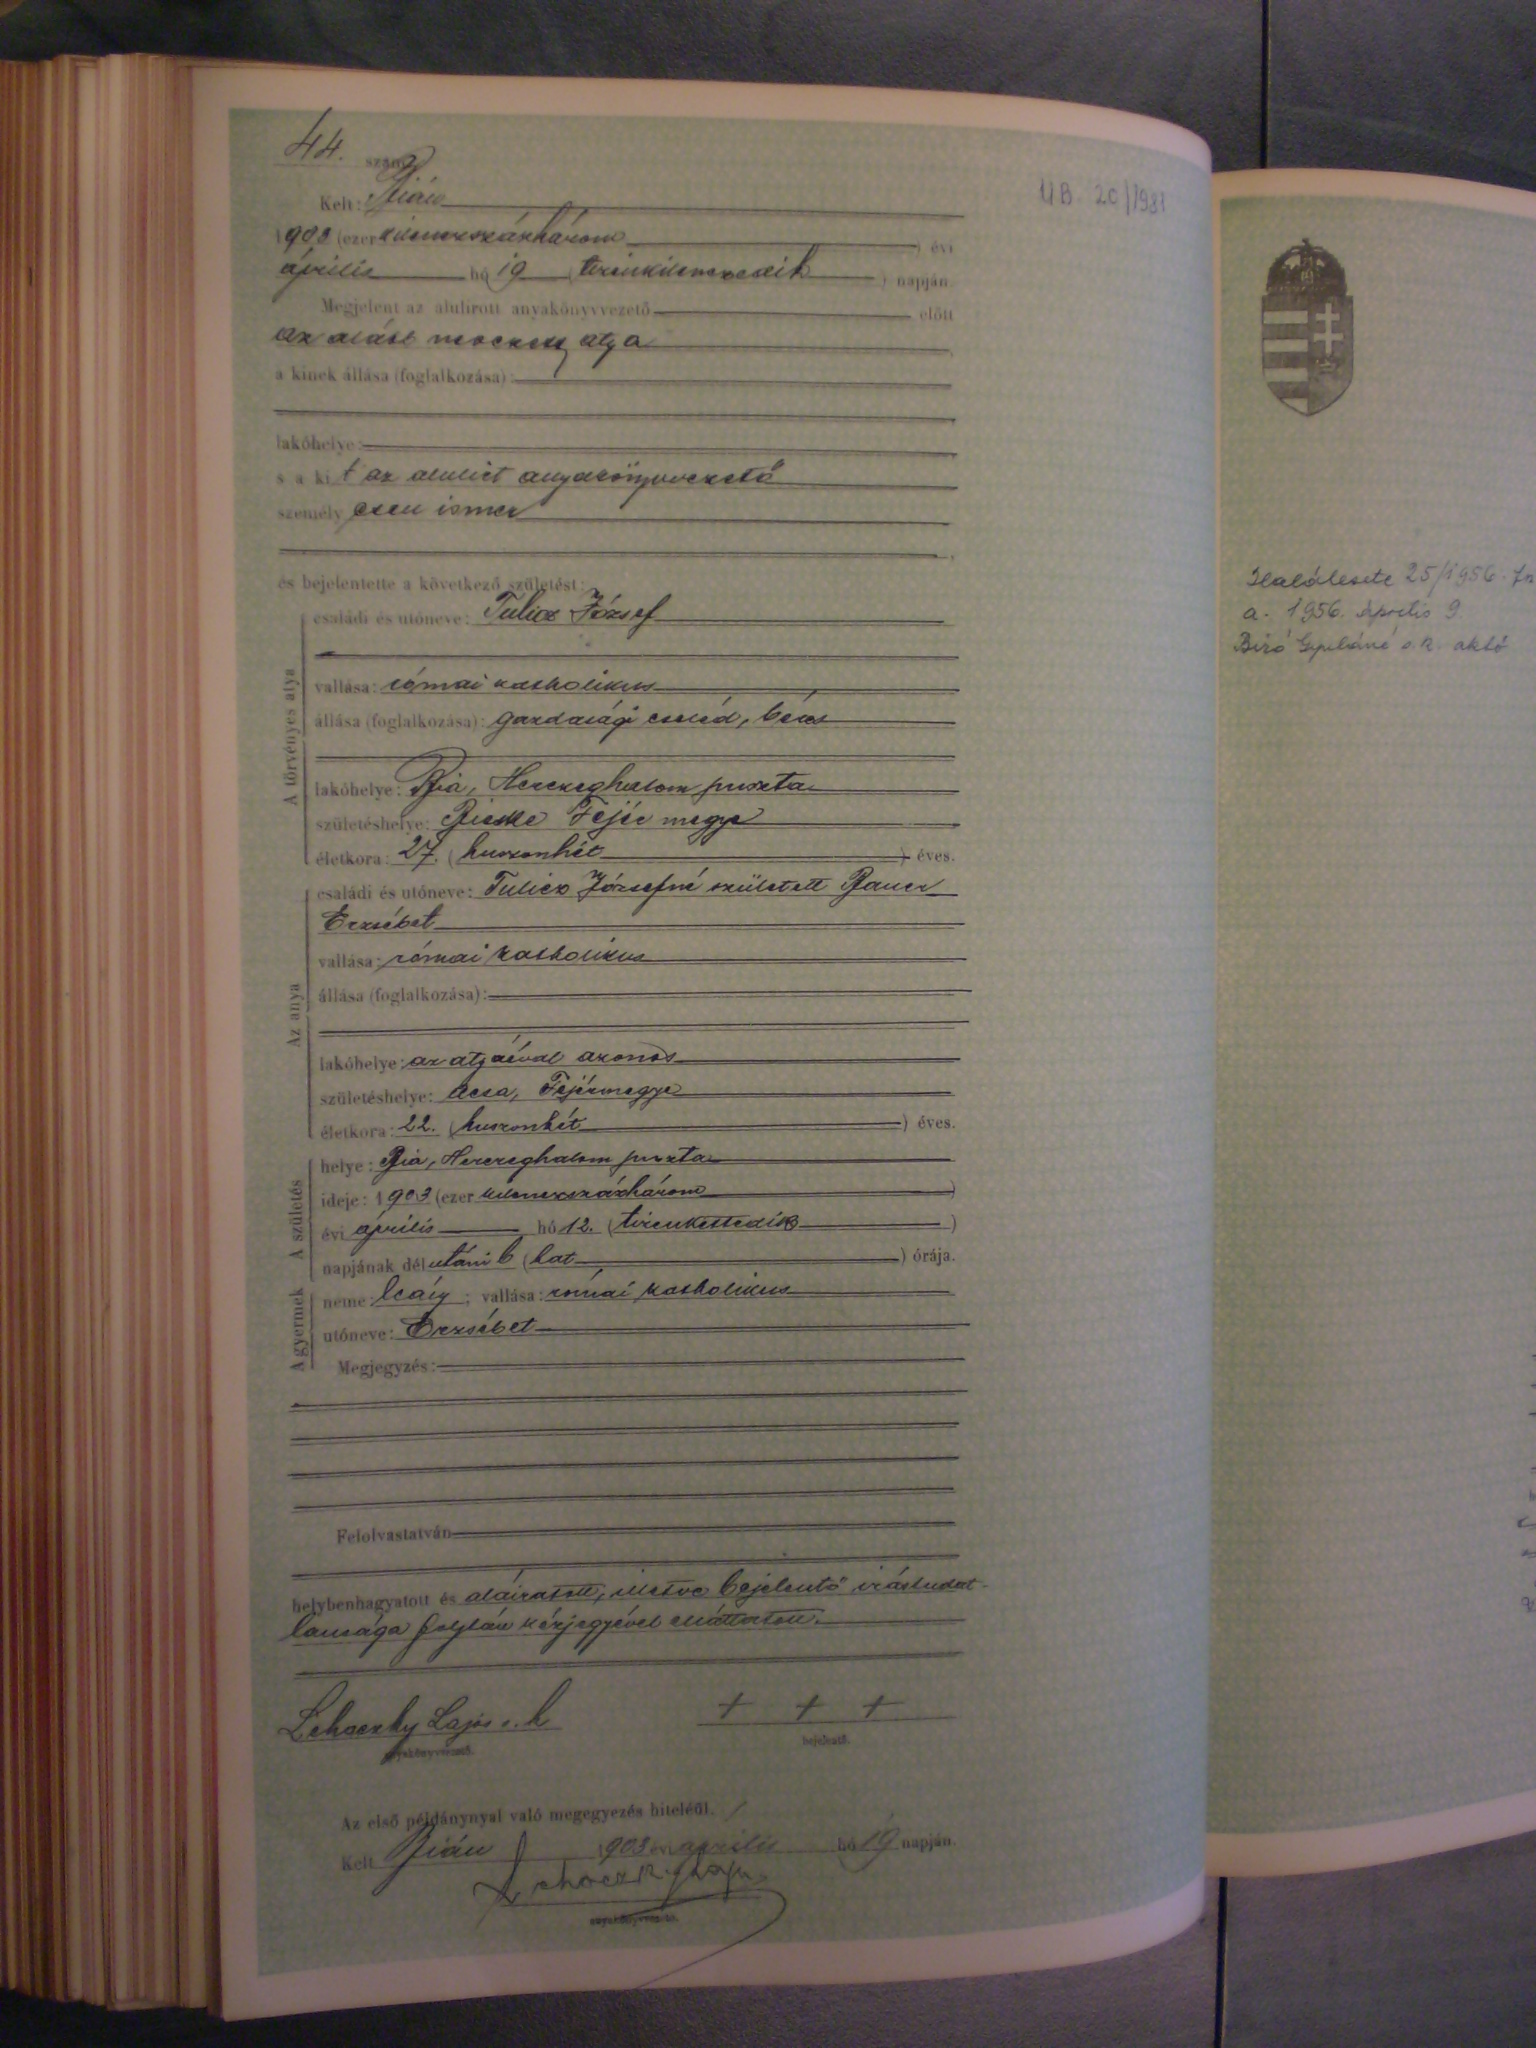 44. szám
Kelt: Bián
1903 (ezer kilenczszázhárom) évi
április hó 19 (tizenkilenczedik) napján.
Megjelent az alulirott anyakönyvvezető előtt
az alább nevezett atya
a kinek állása (foglalkozása):
lakóhelye:
s a kit az alulirt anyakönyvvezető
személyesen ismer
és bejelentette a következő születést:
A törvényes atya
családi és utóneve: Tulicz József
vallása: római katholikus
állása (foglalkozása): gazdasági cseléd, béres
lakóhelye: Bia, Herczeghalom puszta
születéshelye: Bicske Fejér megye
életkora: 27. (huszonhét) éves.
Az anya
családi és utóneve: Tulicz Józsefné született Bauer
Erzsébet
vallása: római katholikus
állása (foglalkozása):
lakóhelye: az atyáéval azonos
születéshelye: Acsa, Fejérmegye
életkora: 22. (huszonhét) éves.
A születés
helye: Bia, Herczeghalom puszta
ideje: 1903 (ezer kilenczszázhárom)
évi április hó 12. (tizenkettedik)
napjának délutáni 6 (hat) órája.
A gyermek
neme: leány; vallása: római katholikus
utóneve: Erzsébet
Megjegyzés:
Felolvastatván
helybenhagyatott és aláiratott, illetve bejelentő irástudat-
lansága folytán kézjegyével elláttatott.
Lehoczky Lajos s. k.
anyakönyvvezető.
+ + +
bejelentő.
Az első példánynyal való megegyezés hiteléül.
Kelt Bián 1903 évi április hó 19 napján.
Lehoczky Lajos
anyakönyvvezető.
UB. 20/1981
Halálesete 25/1956.
a. 1956. április 9.
Biró Gyuláné s.k. akhő